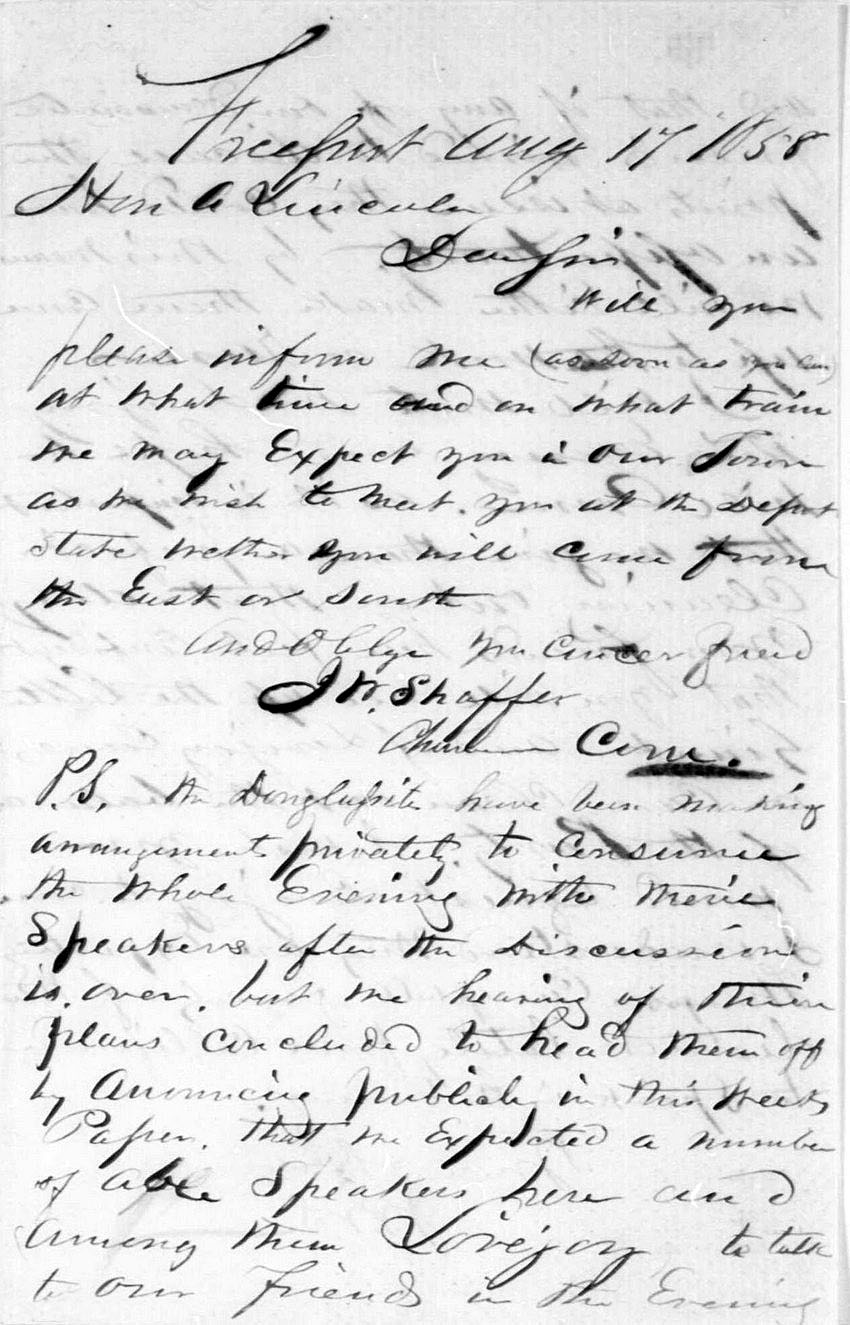 Freeport Aug 17 1858
Hon A Lincoln
Dear Sir
Will you
please inform me (as soon as you can)
at what time and on what train
we may Expect you in Our Town
as we wish to meet you at the Depot
state wether you will come from
the East or South
And Oblige your cincer friend
J W. Shaffer
Chairman Com.
P.S. the Douglasites have been making
arrangements privately to consume
the whole Evening with their
Speakers after the Discussion
is over. but we hearing of their
plans concluded to head them off
by Anouncing publicly in this weeks
Paper. that we Expected a number
of able Speakers here and
among them Lovejoy to talk
to our friends in the Evening